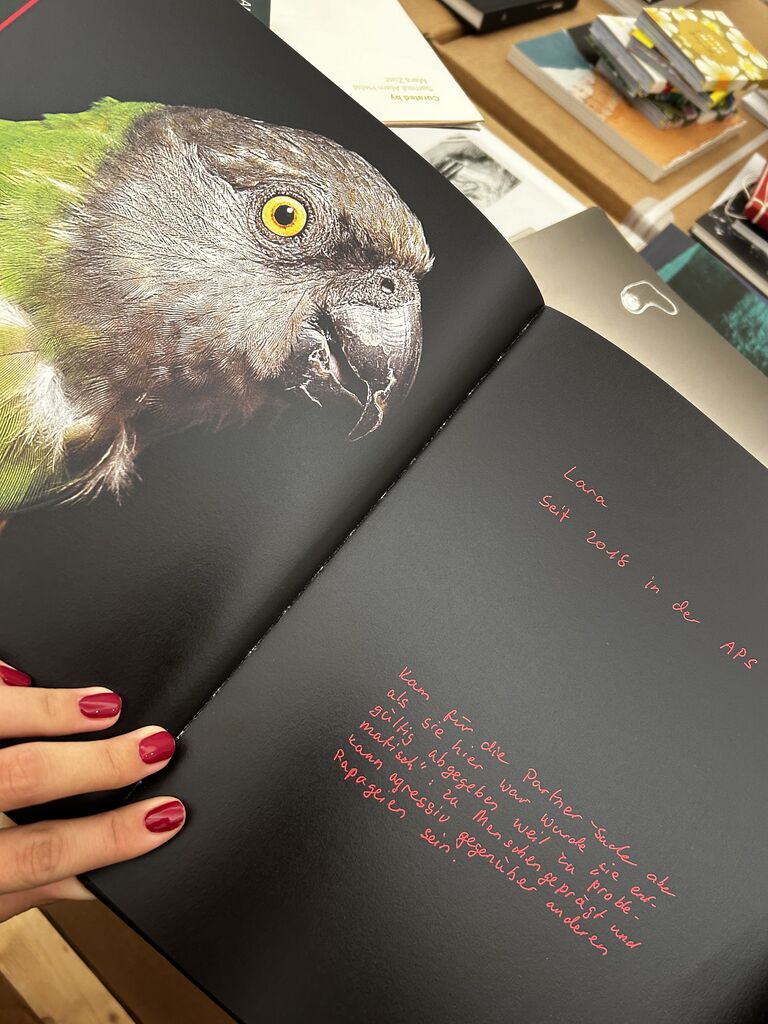 Curated by
Mara Züst
Lara
Seit 2018 in der APS
Kam für die Partner-Suche aber
als sie hier war wurde sie en-
gültig abgegeben weil zu „proble-
matisch": zu Menschengeprägt und
kann agressiv gegenüber anderen
Rapageien sein!